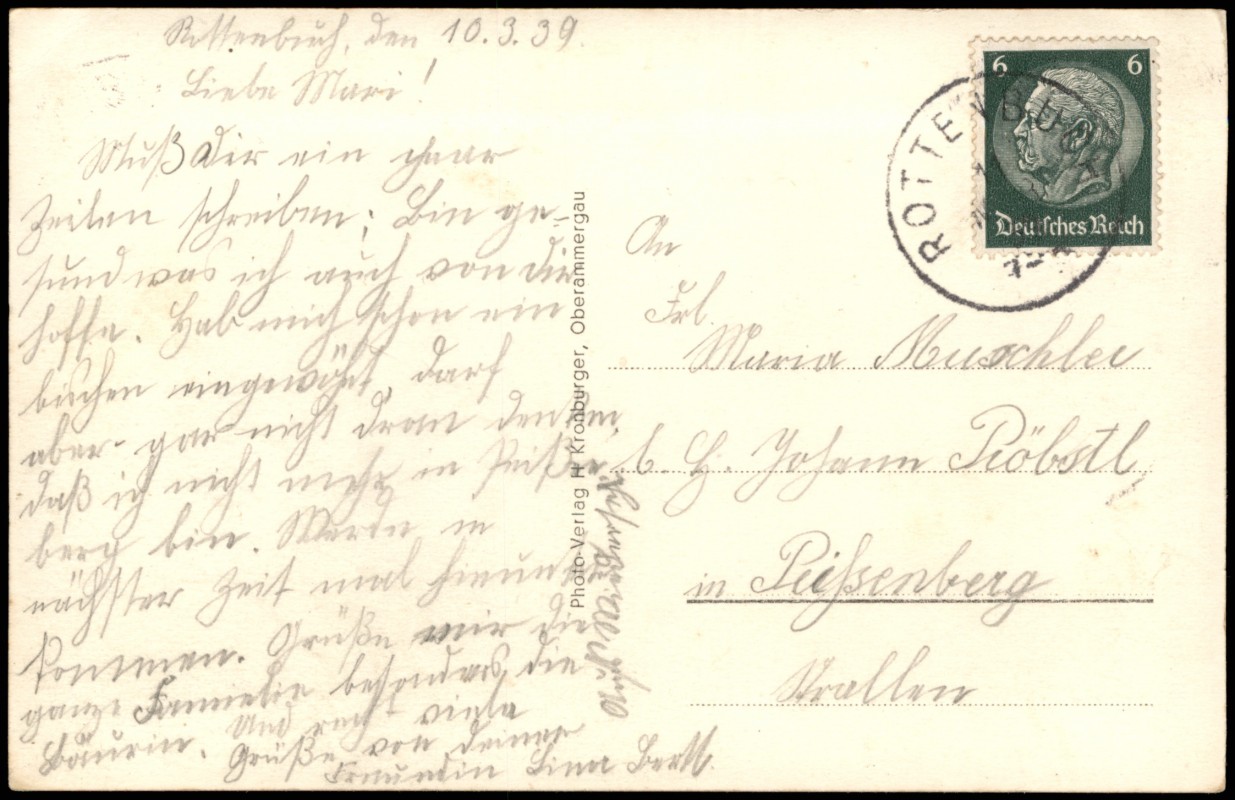 Rottenbuch, den 10.3.39.
Liebe Mari!
Muß Dir ein paar
Zeilen schreiben; Bin ge-
sund was ich auch von dir
hoffe. Hab mich schon ein
bischen eingewöhnt, darf
aber gar nicht dran denken,
daß ich nicht mehr in Peißen-
berg bin. Werde in
nächster Zeit mal hinunter
kommen. Grüße mir die
ganze Famielie besonders die
Bäurin. Und recht viele
Grüße von deiner
Freundin Lina
Photo-Verlag H Kronburger, Oberammergau
6 6
Deutsches Reich
ROTTENBUCH
An
Frl.
Maria
b. H. Johann Pröbstl
in Peißenberg